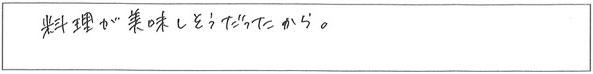 料理が美味しそうだったから。